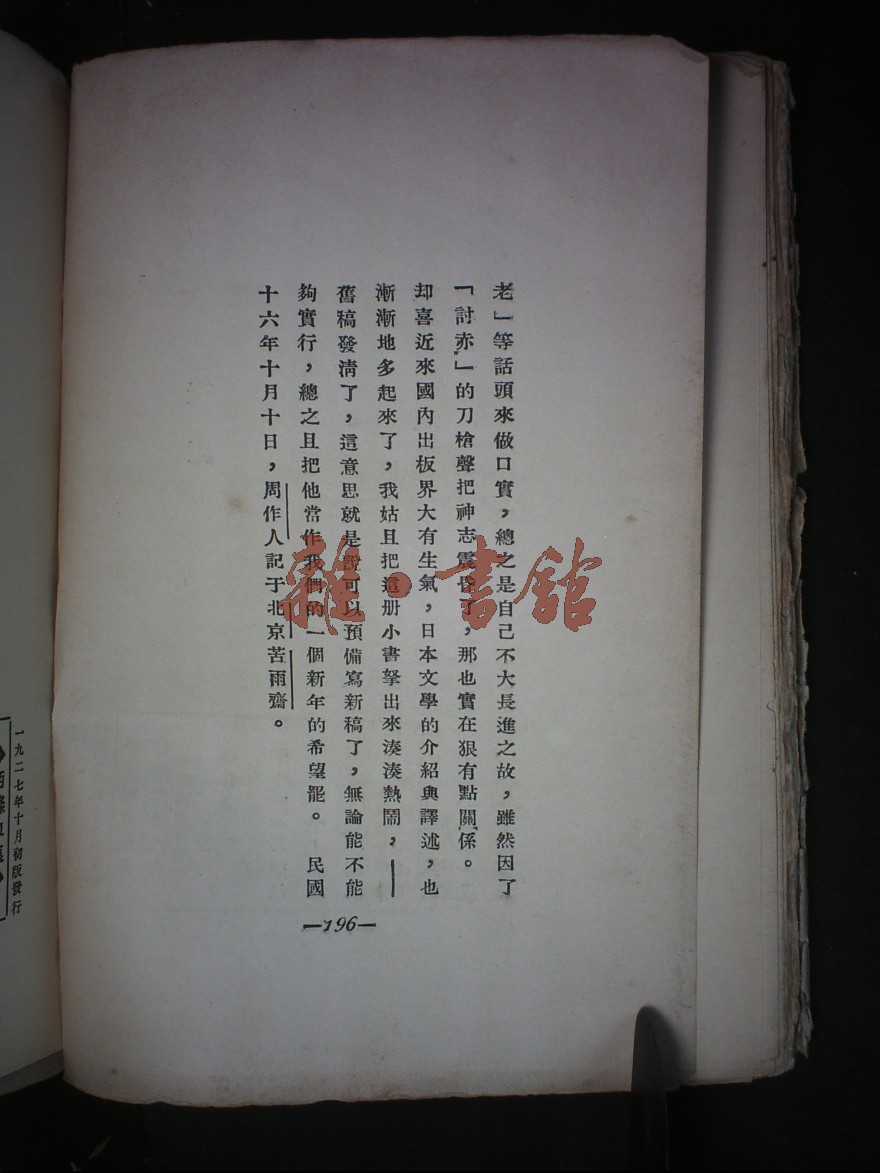 老」等話頭來做口實，總之是自己不大長進之故，雖然因了
「討赤」的刀槍聲把神志震昏了，那也實在狠有點關係。
却喜近來國內出板界大有生氣，日本文學的介紹與譯述，也
漸漸地多起來了，我姑且把這册小書拏出來湊湊熱鬧，——
舊稿發清了，這意思就是說可以預備寫新稿了，無論能不能
夠實行，總之且把他當作我們的一個新年的希望罷。　民國
十六年十月十日，周作人記于北京苦雨齋。
—196—
雜·書館
一九二七年十月初版發行